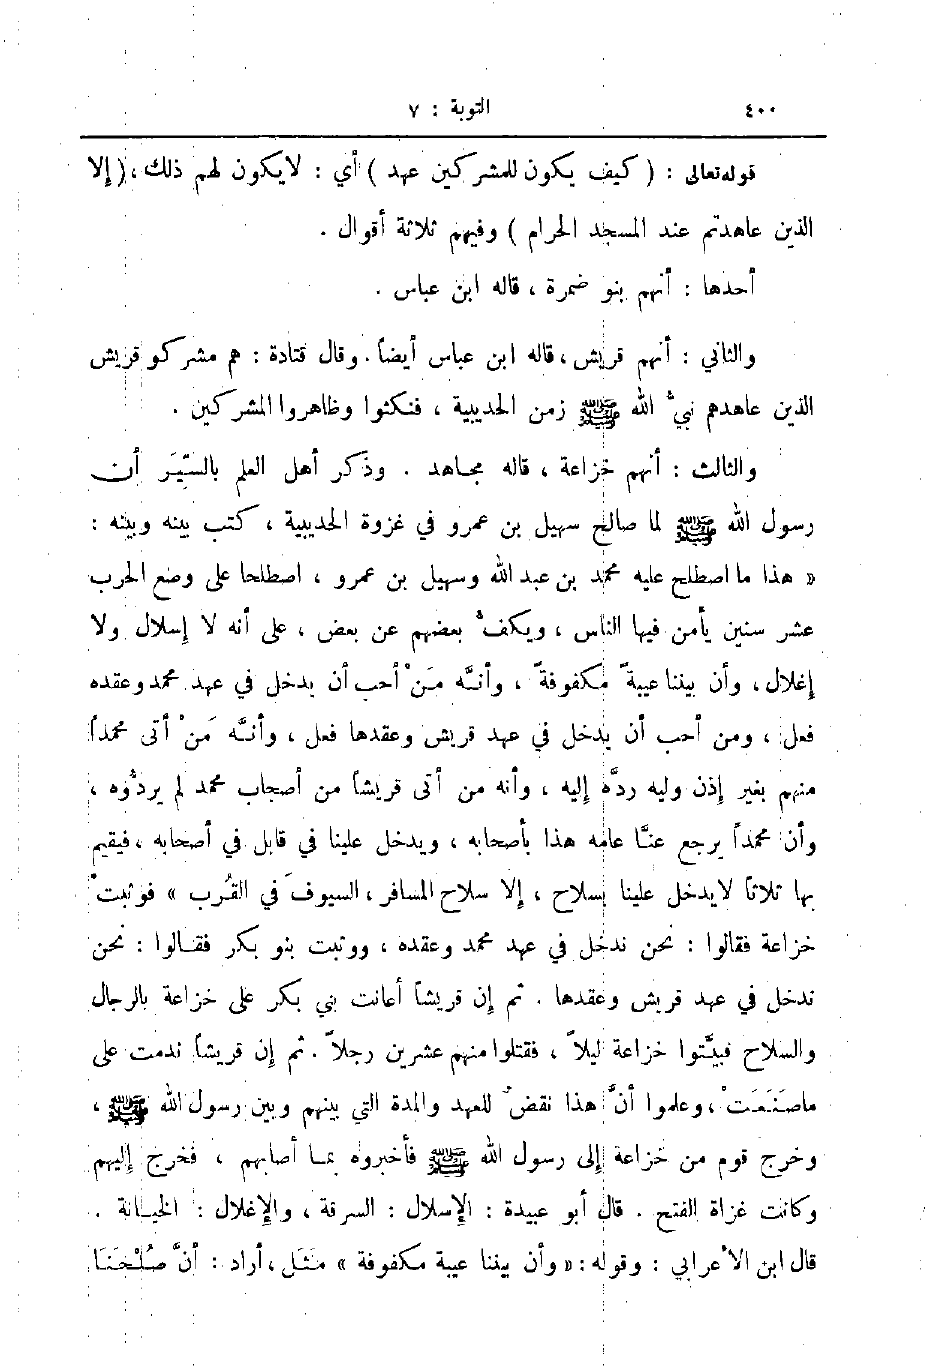 ٤٠٠ التوبة : ٧
قوله تعالى : ( كيف يكون للمشركين عهد ) أي : لايكون لهم ذلك ، ( إلا
الذين عاهدتم عند المسجد الحرام ) وفيهم ثلاثة أقوال .
أحدها : أنهم بنو ضمرة ، قاله ابن عباس .
والثاني : أنهم قريش ، قاله ابن عباس أيضاً . وقال قتادة : هم مشركو قريش
الذين عاهدهم نبيُّ الله ﷺ زمن الحديبية ، فنكثوا وظاهروا المشركين .
والثالث : أنهم خزاعة ، قاله مجاهد . وذكر أهل العلم بالسِّيَر أن
رسول الله ﷺ لما صالح سهيل بن عمرو في غزوة الحديبية ، كتب بينه وبينه :
« هذا ما اصطلح عليه محمد بن عبد الله وسهيل بن عمرو ، اصطلحا على وضع الحرب
عشر سنين يأمن فيها الناس ، ويكفُّ بعضهم عن بعض ، على أنه لا إسلال ولا
إغلال ، وأن بيننا عيبةً مكفوفةً ، وأنَّه مَنْ أحب أن يدخل في عهد محمد وعقده
فعل ، ومن أحب أن يدخل في عهد قريش وعقدها فعل ، وأنَّه مَنْ أتى محمداً
منهم بغير إذن وليه ردَّه إليه ، وأنه من أتى قريشاً من أصحاب محمد لم يردُّوه ،
وأن محمداً يرجع عنَّا عامه هذا بأصحابه ، ويدخل علينا في قابل في أصحابه ، فيقيم
بها ثلاثاً لايدخل علينا بسلاح ، إلا سلاح المسافر ، السيوفَ في القُرب » فوثبتْ
خزاعة فقالوا : نحن ندخل في عهد محمد وعقده ، ووثبت بنو بكر فقالوا : نحن
ندخل في عهد قريش وعقدها . ثم إن قريشاً أعانت بني بكر على خزاعة بالرجال
والسلاح فبيَّتوا خزاعة ليلاً ، فقتلوا منهم عشرين رجلاً . ثم إن قريشاً ندمت على
ماصَنَعَتْ ، وعلموا أنَّ هذا نقضٌ للعهد والمدة التي بينهم وبين رسول الله ﷺ ،
وخرج قوم من خزاعة إلى رسول الله ﷺ فأخبروه بما أصابهم ، فخرج إليهم
وكانت غزاة الفتح . قال أبو عبيدة : الإسلال : السرقة ، والإغلال : الخيانة .
قال ابن الأعرابي : وقوله : « وأن بيننا عيبة مكفوفة » مَثَل ، أراد : أنَّ صُلْحَنَا